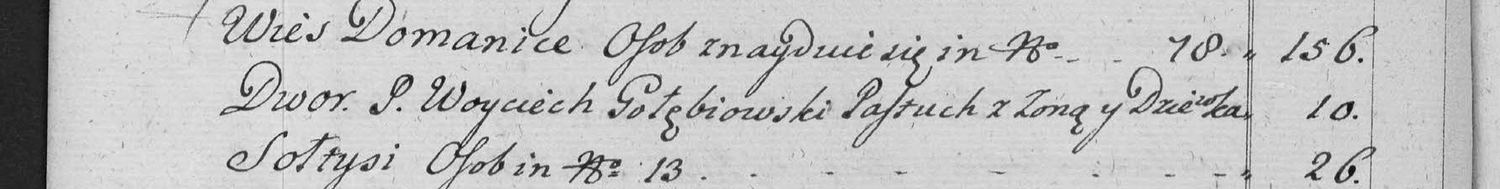 Wieś Domanice Osob znayduie się in No . . 78. „ 156.
Dwor. P. Woyciech Gołębiowski Pastuch z Zoną y Dziewka „ 10.
Sołtysi Osob in No 13 . . . . . . . „ 26.